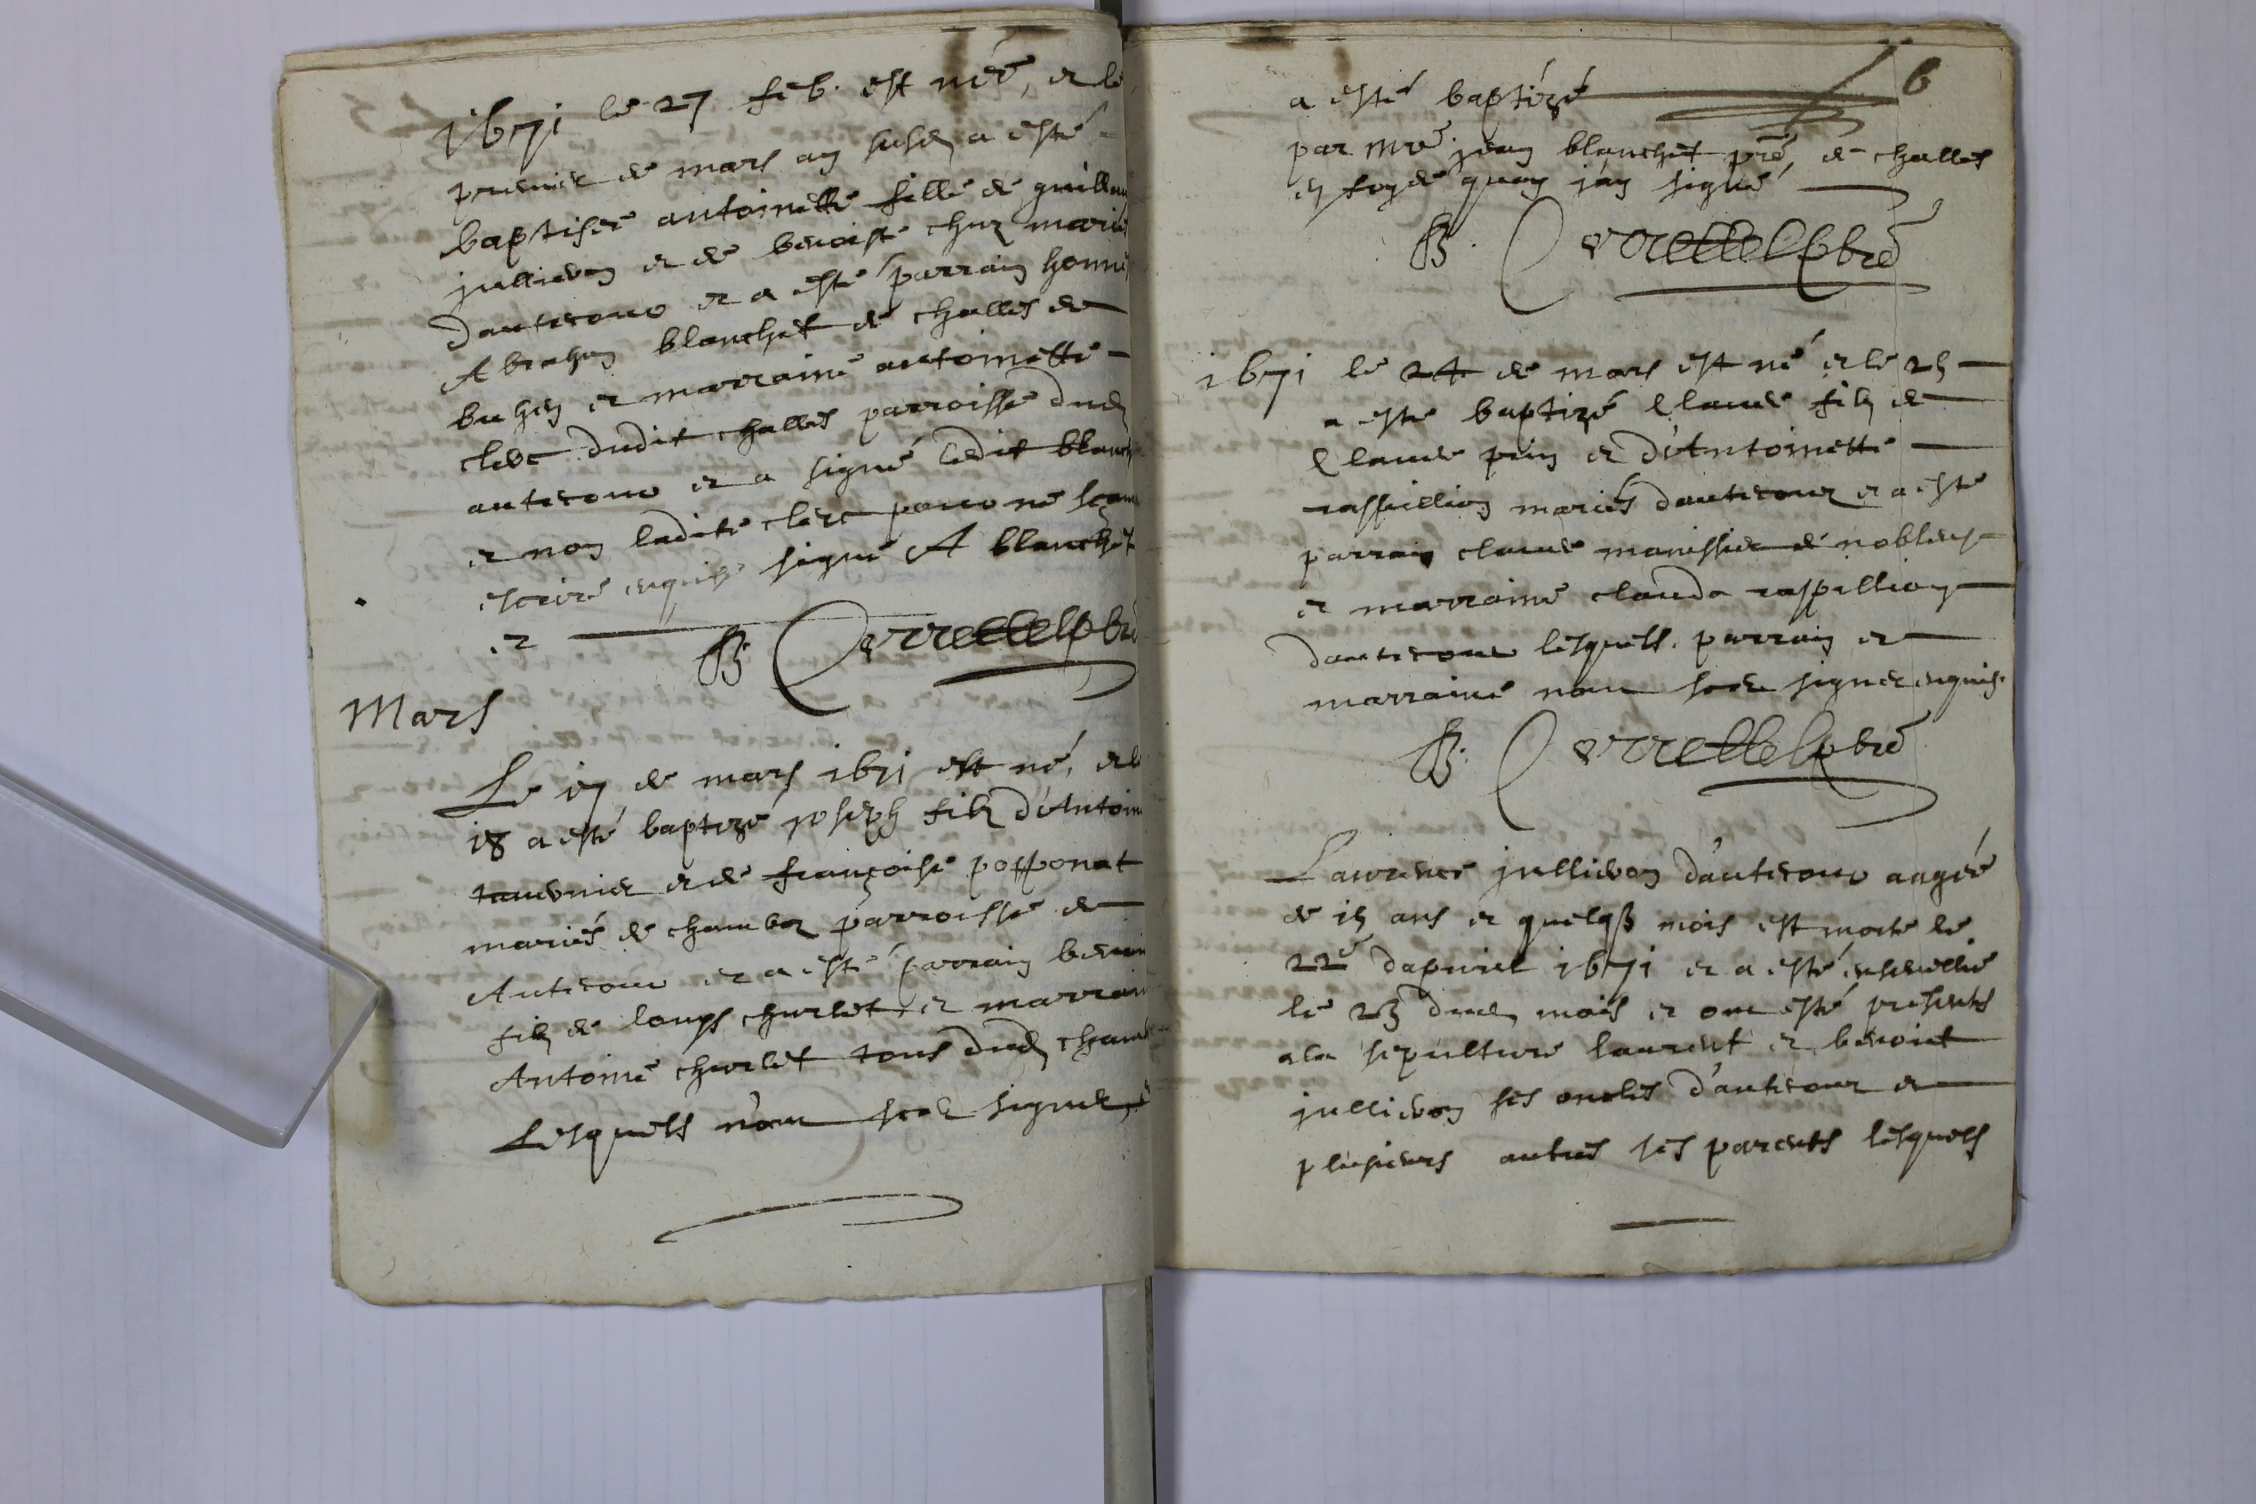 1671 le 27 feb. est née, et le
premier de mars an susd a esté
baptisée antoinette fille de guillau
jullieron et de benoiste chuz marié
dautecour et a esté parrain honne
Abraham blanchet de challes de
bu hen et marraine antoinette
clerc dudit challes parroisse dud
autecour et a signé ledit blanch
et non ladite clerc pour ne scavo
escrire enquise signé A blanchet
et
B Correttel pbre
Mars
Le 17 de mars 1671 est né, et le
18 a esté baptizé joseph filz d'Antoin
tavernier et de françoise popponat
mariés de chambo parroisse de
Autecour et a esté parrain benoi
filz de louys churlet et marrain
Antoine churlet tous dud chamb
Lesquels n'ont sceu signer, e
6
a esté baptizé
par mre jean blanchet pre, de challes
en foy de quoy j'ay signé
B. Correttel pbre
1671 le 24 de mars est né et le 25
a esté baptizé Claude filz de
Claude prin et d'Antoinette
raspillion mariés dautecour et a esté
parrain claude manissier de noblens
et marraine clauda raspillion
dautecour lesquels parrain et
marraine n'ont sceu signer enquis.
B. Correttel pbre
Laurence jullieron d'autecour aagée
de 15 ans et quelqs mois est morte le
22e dapvriel 1671 et a esté ensevellie
le 23 dud mois et ont esté presents
a la sepulture laurent et benoict
jullieron ses oncles d'autecour et
plusieurs autres ses parents lesquels